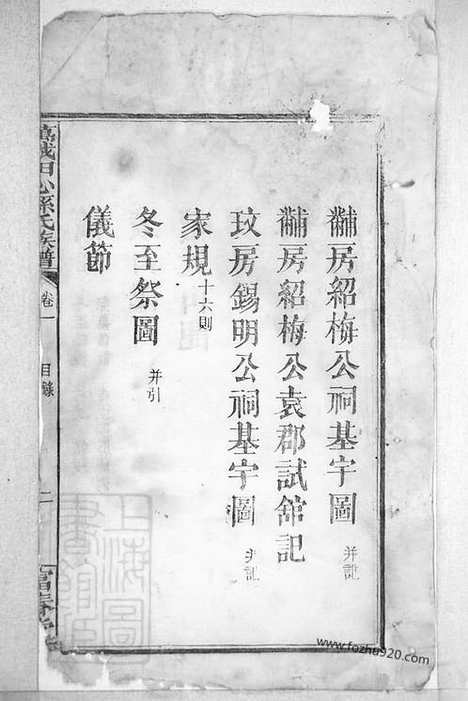 黼房紹梅公祠基宇圖 并記
黼房紹梅公袁郡試舘記
玟房錫明公祠基宇圖 并記
家規 十六則
冬至祭圖 并引
儀節
萬載田心孫氏族譜 卷一 目錄 二 富春堂
上海圖書館藏
www.fozhu920.com